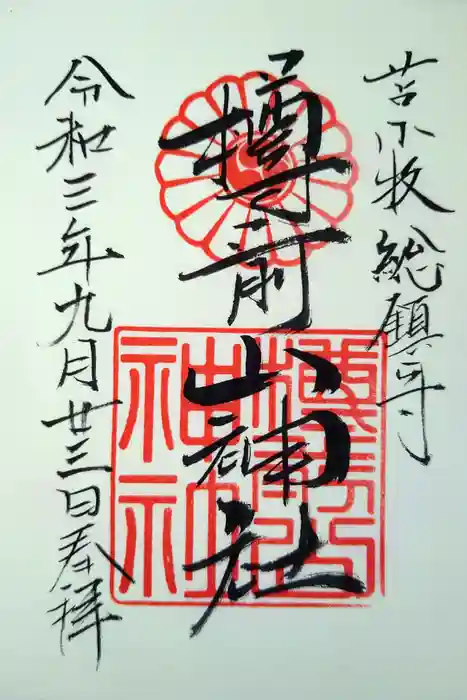 苫小牧総鎮守
樽前山神社
令和三年九月廿三日奉拝
樽前山
神社